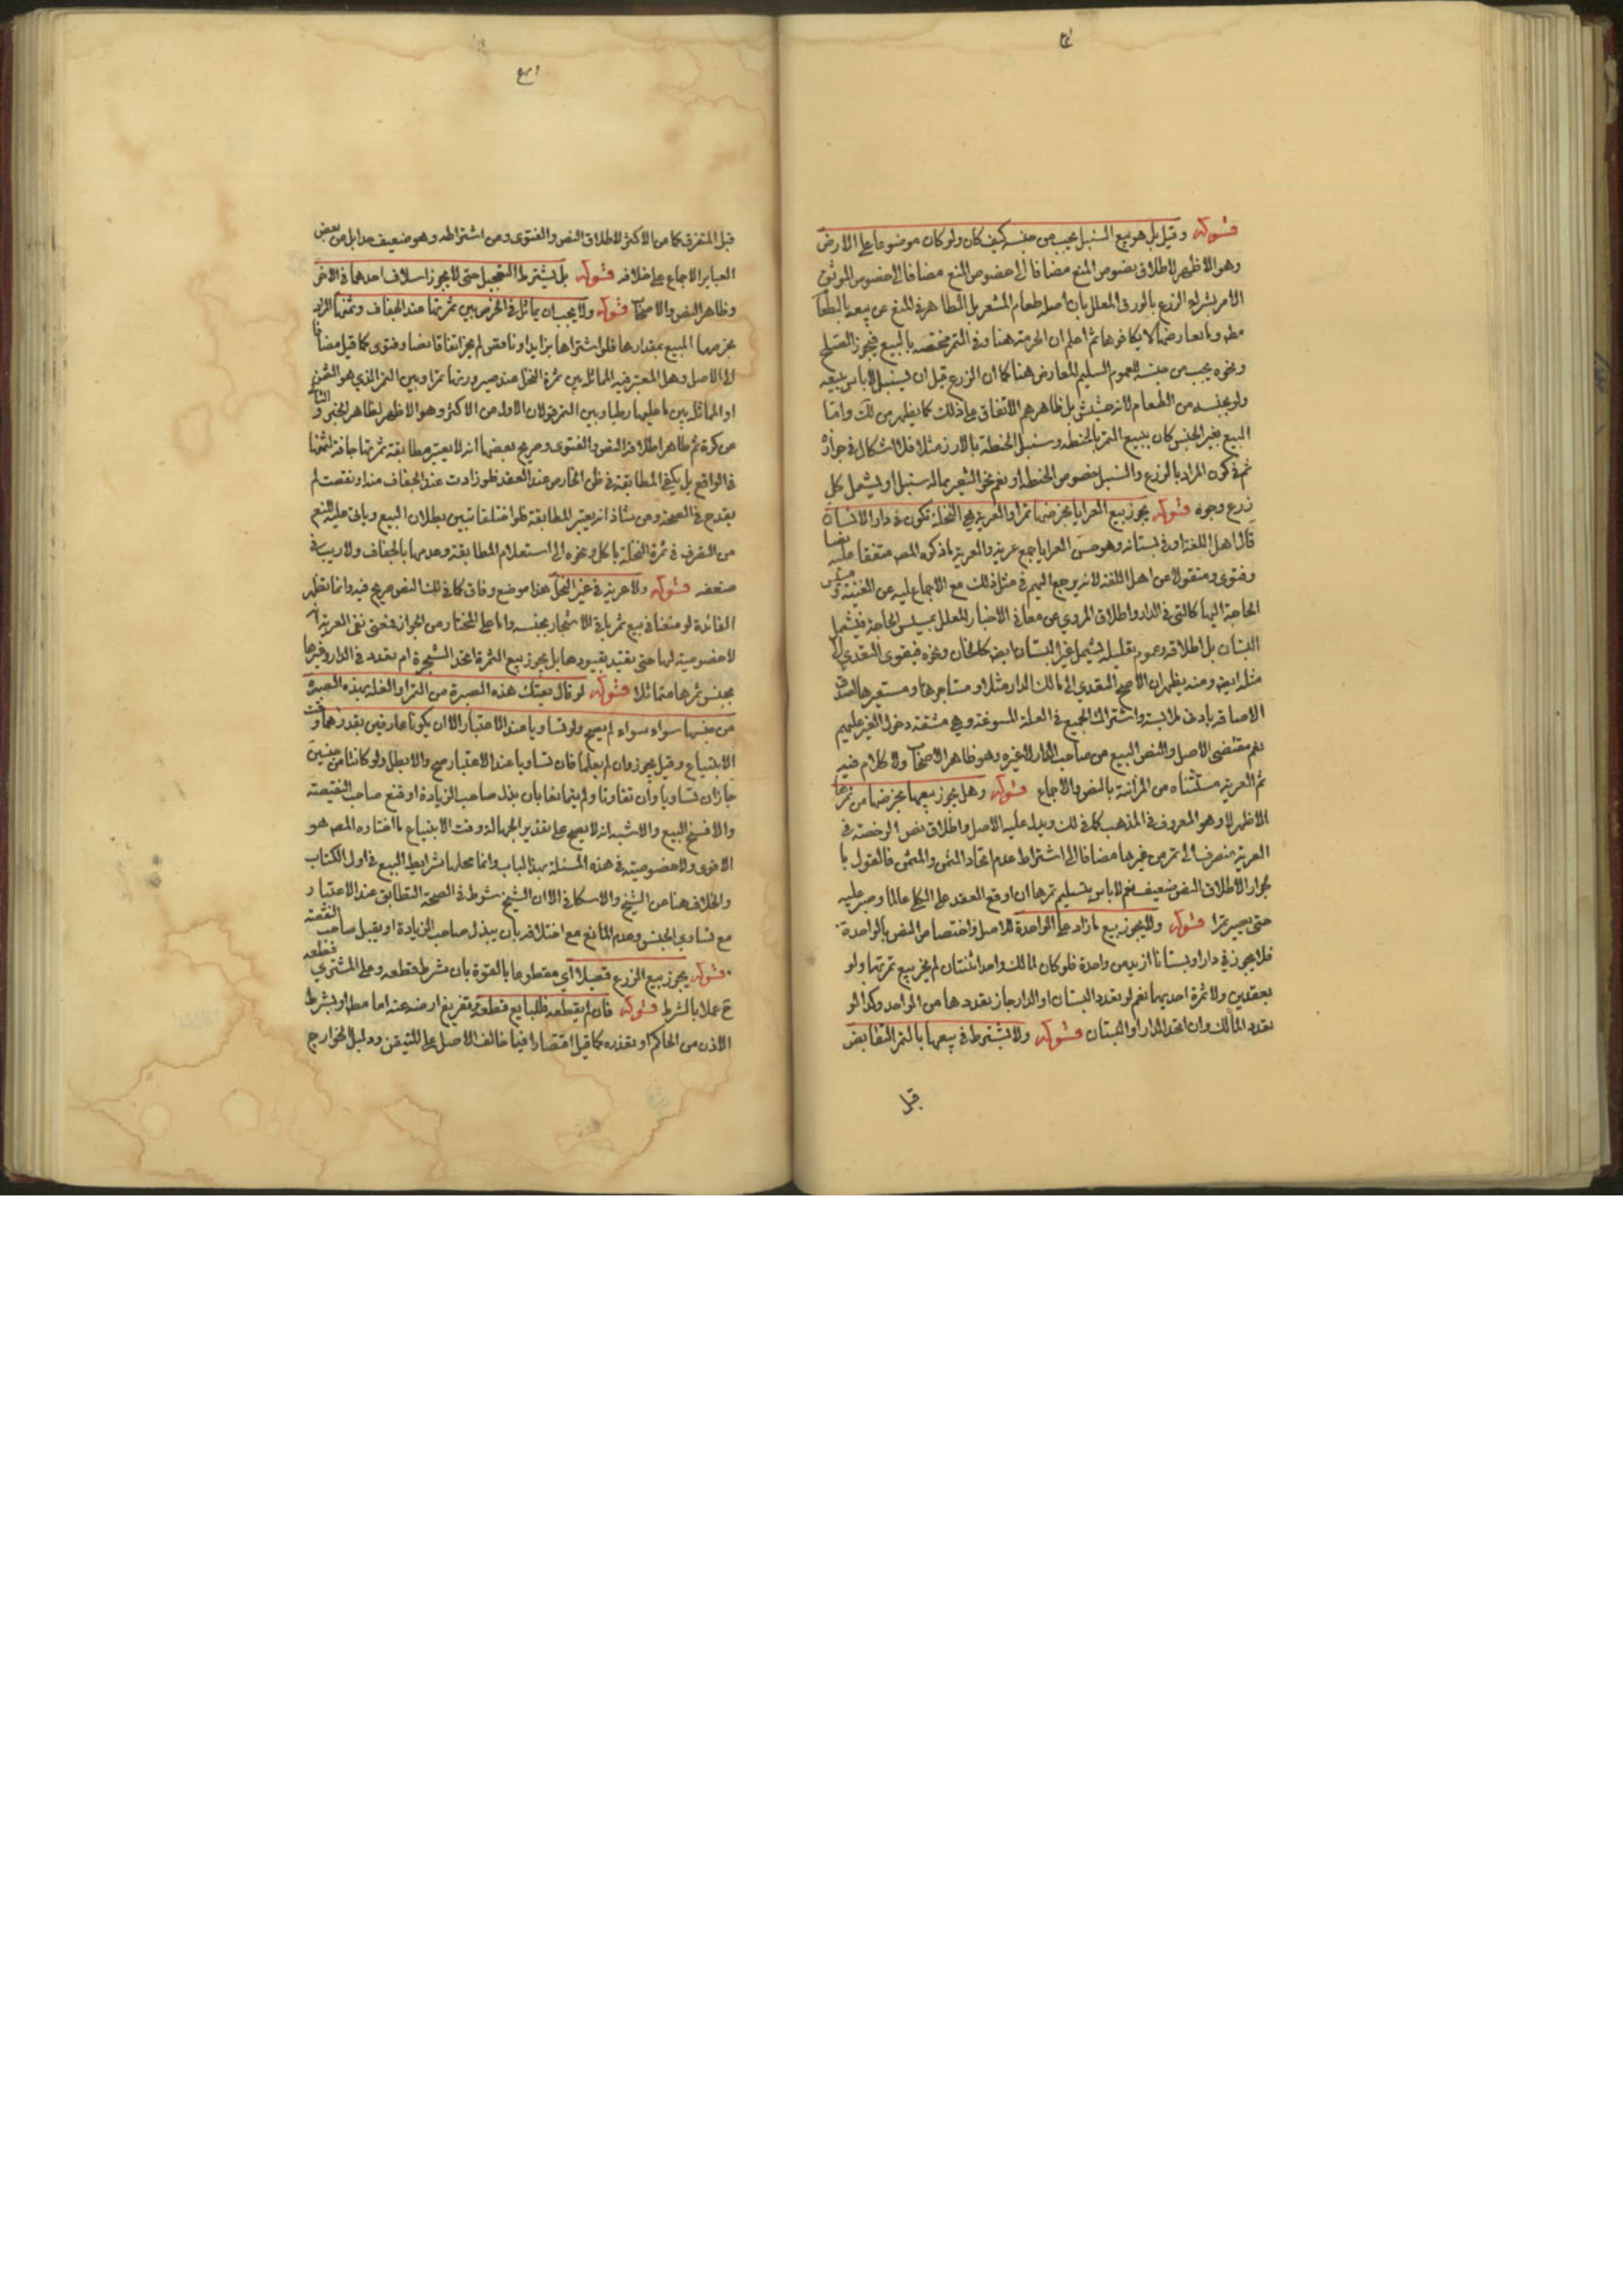 قوله وقيل بل هو بيع السنبل بحب من جنسه كيف كان ولو كان موضوعا على الارض
وهو الاظهر لاطلاق نصوص المنع مضافا الى خصوص المنع مضافا الى خصوص الموثق
الامر بشراء الزرع بالورق المعلل بان اصله طعام المشعر بل الظاهر في المنع عن بيعه بالطعام
مطه وما يعارضها لا يكافوها ثم اعلم ان الحرمة هنا وفي التمر مختصه بالبيع فيجوز الصلح
ونحوه بحب من جنسه للعموم السليم للمعارض هنا كما ان الزرع قبل ان يسنبل لا باس ببيعه
ولو بجنسه من الطعام لانه حشيش بل ظاهرهم الاتفاق على ذلك كما يظهر من لك واما
البيع بغير الجنس كان يبيع التمر بالحنطه وسنبل الحنطه بالارز مثلا فلا اشكال في جوازه
ثم في كون المراد بالزرع والسنبل خصوص الحنطه او نعم نحو الشعير بماله سنبل او يشمل كل
زرع وجوه قوله يجوز بيع العرايا بخرصها تمرا والعرية هي النخلة تكون في دار الانسان
قال اهل اللغة او في بستانه وهو حسن العرايا جمع عرية والعرية ما ذكره المص متفقا عليه نصا
وفتوى ومنقولا من اهل اللغة لانه يرجع اليهم في مثل ذلك مع الاجماع عليه عن الغنية و
الحاجة اليها كالتي في الدار واطلاق المروي عن معاني الاخبار المعلل بمسيس الحاجة فيشمل
البستان بل اطلاقه وعموم تعليله يشمل غير البستان ايض كالخان ونحوه فيقوى التعدي الى
مثله ايض ومنه يظهر ان الاصح التعدي الى مالك الدار مثلا او مستاجرها ومستعيرها لصدق
الاضافه بادنى ملابسة واشتراك الجميع في العلة المسوغة وهي مشقة دخول الغير عليهم
نعم مقتضى الاصل والنص البيع من صاحب الدار لا غيره وهو ظاهر الاصحاب ولا كلام فيه
ثم العرية مستثناه من المزابنة بالنص والاجماع قوله وهل يجوز بيعها بخرصها من تمرها
الاظهر لا وهو المعروف في المذهب كما في لك ويدل عليه الاصل واطلاق نصوص الرخصة في
العرية منصرف الى تمر من غيرها مضافا الى اشتراط عدم اتحاد الثمن والمثمن فالقول با
لجواز لاطلاق النص ضعيف نعم لا باس بتسليم تمرها ان اوقع العقد على الكلي عالما وصبر عليه
حتى يصير تمرا قوله ولا يجوز بيع ما زاد على الواحدة للاصل واختصاص النص بالواحدة
فلا يجوز في دار او بستانا ازيد من واحدة فلو كان لمالك واحد اثنتان لم يجز بيع ثمرتهما ولو
بعقدين ولا ثمرة احديهما نعم لو تعدد البستان او الدار جاز تعددها من الواحد وكذا لو
تعدد المالك وان اتحد الدار او البستان قوله ولا يشترط في بيعها بالتمر التقابض
قبل
قبل التفرق كما من الاكثر لاطلاق النص والفتوى ومن اشتراطه وهو ضعيف بل من بعض
العباير الاجماع على خلافه قوله بل يشترط التعجيل حتى لا يجوز اسلاف احدهما في الاخر
وظاهر النص والاصحاب قوله ولا يجب ان يماثل في الخرص بين ثمرتها عند الجفاف وثمنها
بخرصها المبيع بمقدارها فلو اشتراها بزايد او ناقص لم يجز اتفاقا نصا وفتوى كما قيل مضافا
الى الاصل وهل المعتبر فيه المماثلة بين ثمرة النخل عند صيرورتها تمرا وبين التمر الذي هو الثمن
او المماثلة بين ما عليها رطبا وبين التمر قولان الاول من الاكثر وهو الاظهر لظاهر الخبر و الثاني
عن كره ثم ظاهر اطلاق النص والفتوى وصريح بعضها انه لا يعتبر مطابقة ثمرتها جافة لثمنها
في الواقع بل يكفي المطابقة في ظن الخارص عند العقد فلو زادت عند الجفاف منه او نقصت لم
يقدح في الصحة ومن شاذ انه يعتبر المطابقة فلو اختلفا تبين بطلان البيع ويأتي عليه المنع
من التصرف في ثمرة النخلة باكل ونحوه الى استعلام المطابقة وعدمها بالجفاف ولا ريب في
ضعفه قوله ولا عرية في غير النخل هذا موضع وفاق كما في لك النص صريح فيه وانما تظهر
الفائدة لو منعنا في بيع ثمر باقي الاشجار بجنسه واما على المختار من الجواز فمعنى نفي العرية انه
لا خصوصية لها حتى يتقيد بقيودها بل يجوز بيع الثمرة اتحد الشجرة ام تعدد في الدار وغيرها
بجنس ثمرها متماثلا قوله لو قال بعتك هذه الصبرة من التمر او الغلة بهذه الصبرة
من جنسها سواء سواء لم يصح ولو تساويا عند الاعتبار الا ان يكونا عارفين بقدرهما وقت
الابتياع وقيل يجوز وان لم يعلما فان تساويا عند الاعتبار صح والا بطل ولو كانتا من جنسين
جاز ان تساويا وان تفاوتا ولم يتمانعا بان بذل صاحب الزيادة او قنع صاحب النقيصة
والا فسخ البيع والاشبه انه لا يصح على تقدير الجهالة وقت الابتياع ما اختاره المص هو
الاقوى ولا خصوصية في هذه المسئلة بهذا الباب وانما محلها شرايط البيع في اول الكتاب
والخلاف هنا من الشيخ والاسكافي الا ان الشيخ شرط في الصحة التطابق عند الاعتبار
مع تساوي الجنس وعدم المانع مع اختلافه بان يبذل صاحب الزيادة او يقبل صاحب النقيصة
قوله يجوز بيع الزرع قصيلا اي مقطوعا بالقوة بان شرط قطعه وعلى المشتري قطعه
ح عملا بالشرط قوله فان لم يقطعه فللبايع قطعه وتفريغ ارضه عنه اما مطه او بشرط
الاذن من الحاكم او تعذره كما قيل اقتصارا فيما خالف الاصل على المتيقن ودليل الخارج